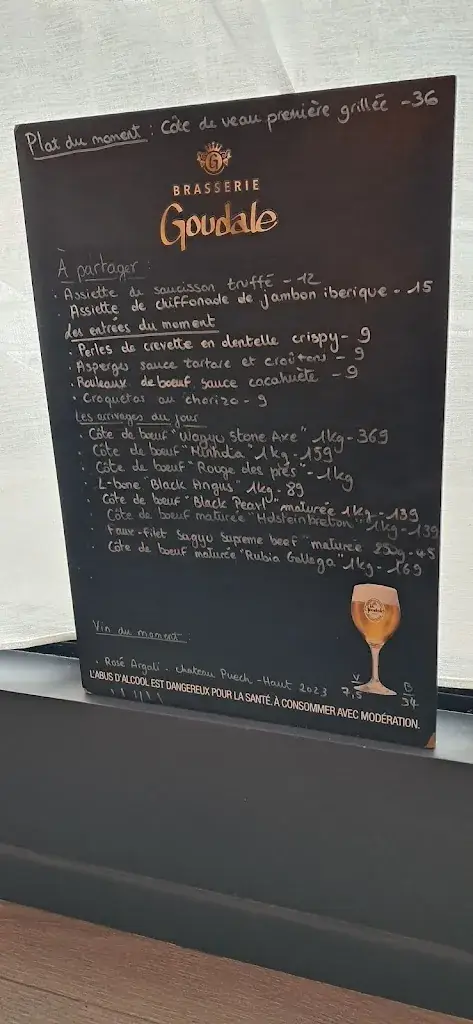 Plat du moment : Côte de veau première grillée - 36
G
BRASSERIE
Goudale
À partager :
• Assiette de saucisson truffé - 12
• Assiette de chiffonade de jambon iberique - 15
des entrées du moment
• Perles de crevette en dentelle crispy - 9
• Asperges sauce tartare et croûtons - 9
• Rouleaux de boeuf sauce cacahuète - 9
• Croquetas au chorizo - 9
Les arrivages du jour
• Côte de boeuf "Wagyu Stone Axe" 1kg - 369
• Côte de boeuf "Minhota" 1kg - 159
• Côte de boeuf "Rouge des prés" - 1kg
• L-bone "Black Angus" 1kg - 89
• Côte de boeuf "Black Pearl" maturée 1kg - 139
• Côte de boeuf maturée "Holstein breton" 1kg - 139
• Faux-filet Sagyu Supreme beef maturée 250g - 45
• Côte de boeuf maturée "Rubia Gallega" 1kg - 169
Vin du moment :
• Rosé Argali - chateau Puech-Haut 2023
V
7,5
B
34
Goudale
L'ABUS D'ALCOOL EST DANGEREUX POUR LA SANTÉ. À CONSOMMER AVEC MODÉRATION.